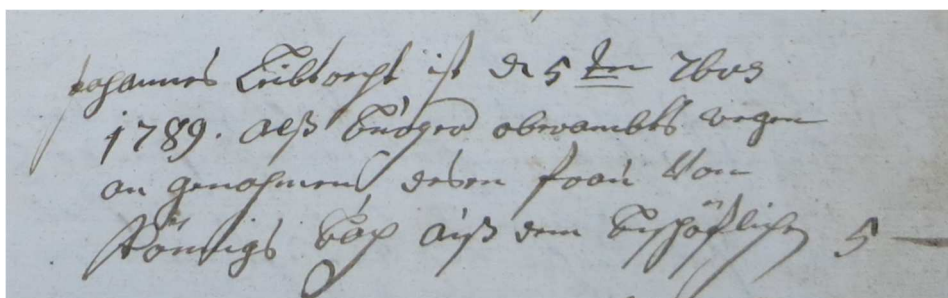 Johannes Leibbrecht ist d 5ten 7bris
1789. alß burger oberambts wegen
an genohmen desen frau Von
Königs bach auß dem bischöflichen 5